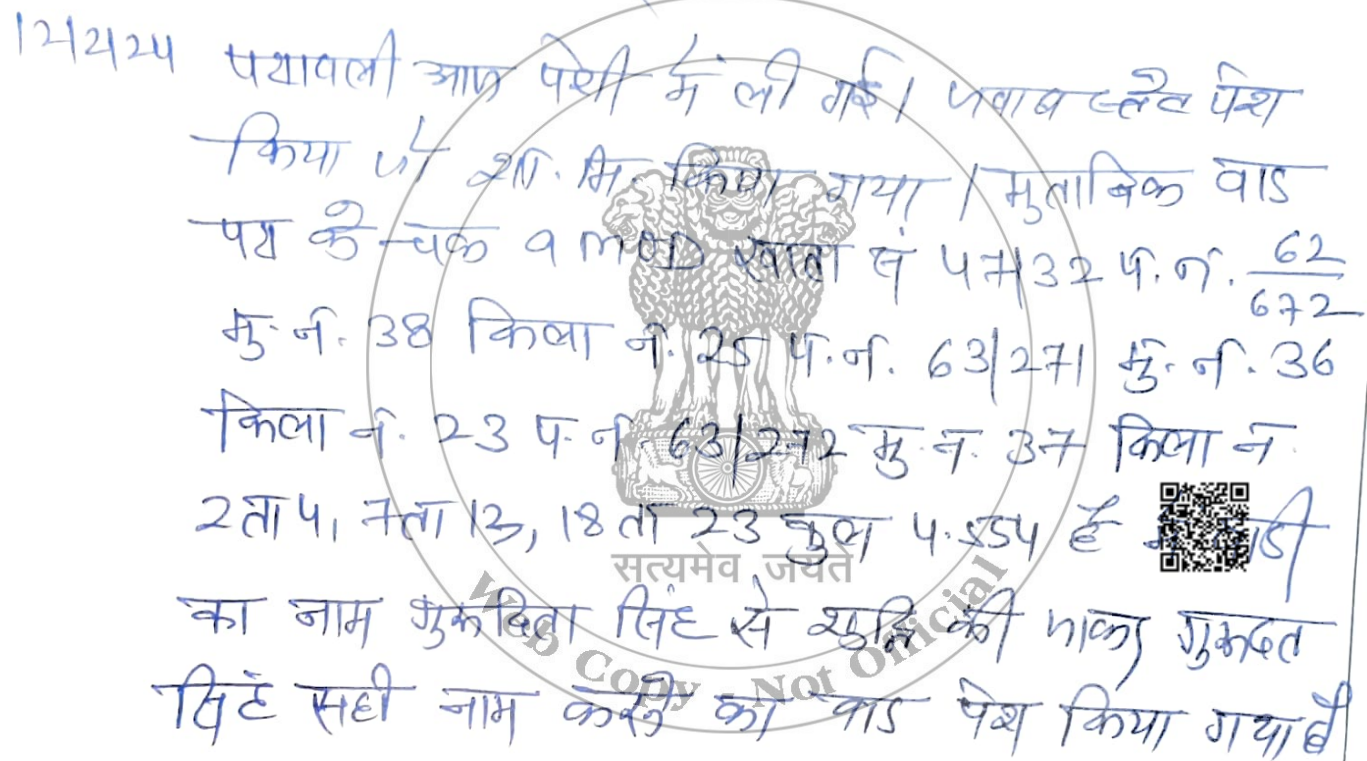 12/2/24 पत्रावली आज पेशी में ली गई। जवाब स्टेट पेश
किया जो शा. मि. किया गया। मुताबिक वाद
पत्र के चक 9 खाता सं 47/32 प.नं. 62/672
मु.नं. 38 किला नं. 25 प.नं. 63/271 मु.नं. 36
किला नं. 23 प.नं. 63/272 मु.नं. 37 किला नं.
2 ता 4, 7 ता 13, 18 ता 23 कुल 4.554 है
का नाम गुरूदिता सिंह से शुद्धि की जाकर गुरूदत
सिंह सही नाम करने का वाद पेश किया गया है
सत्यमेव जयते
Web Copy - Not Official